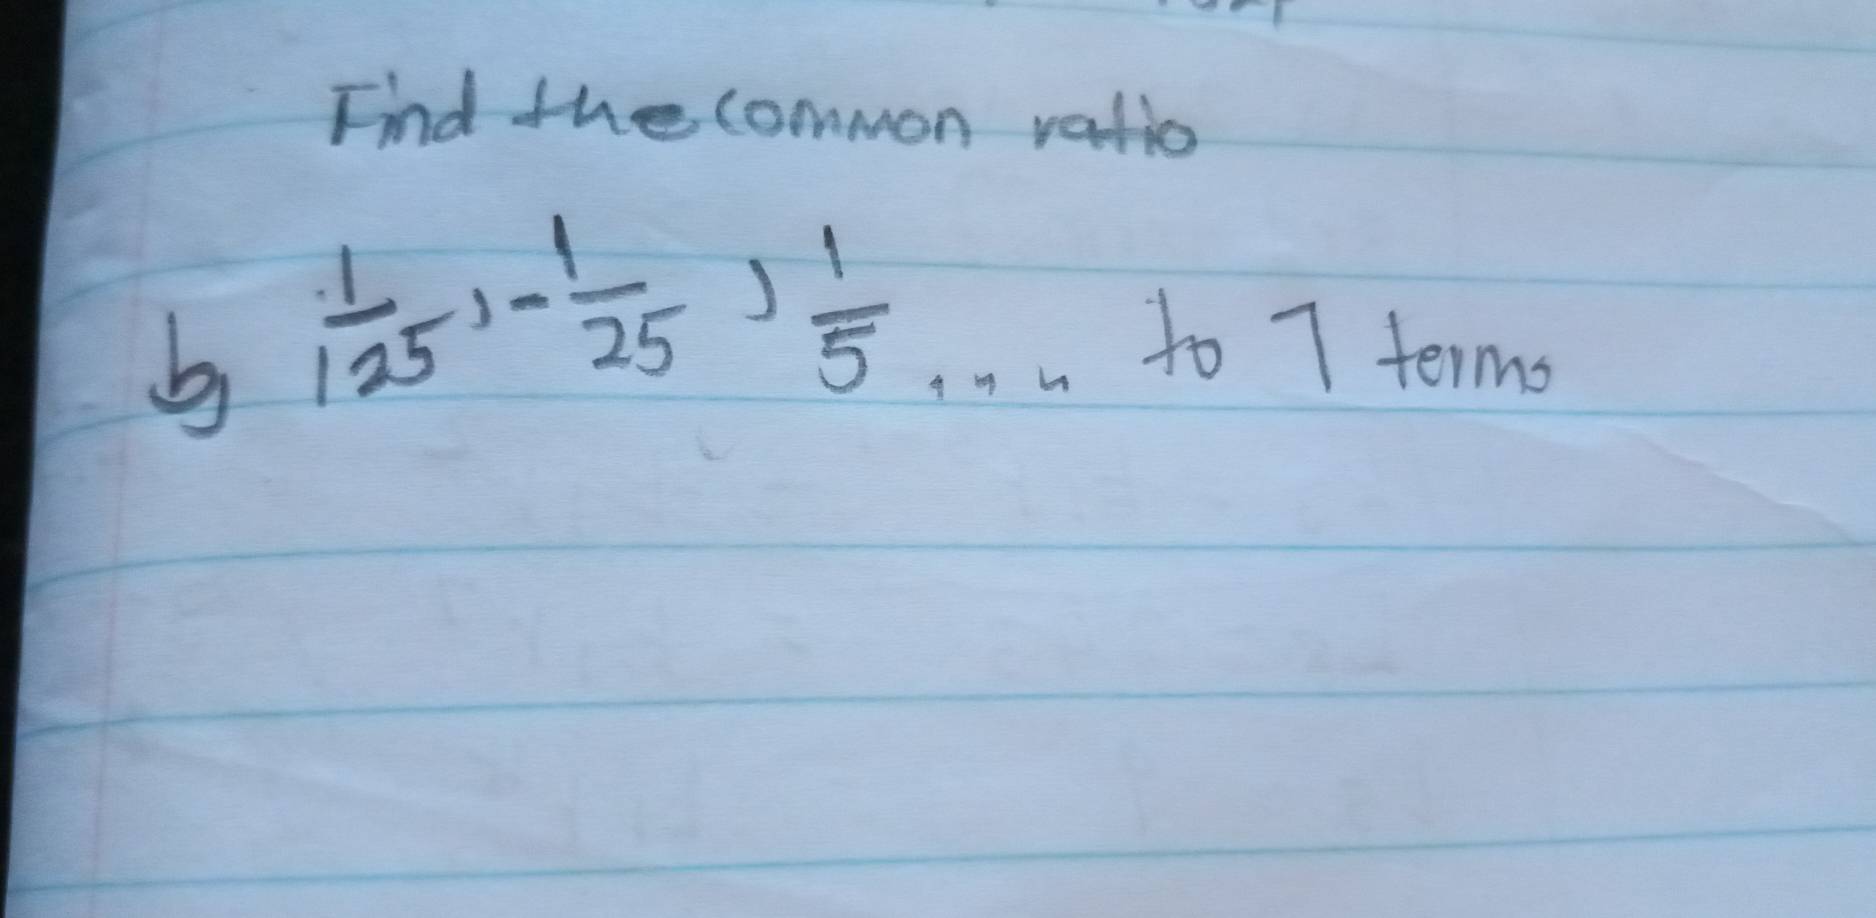 Find the common ratio
b) 1/125, -1/25, 1/5 .... to 7 terms